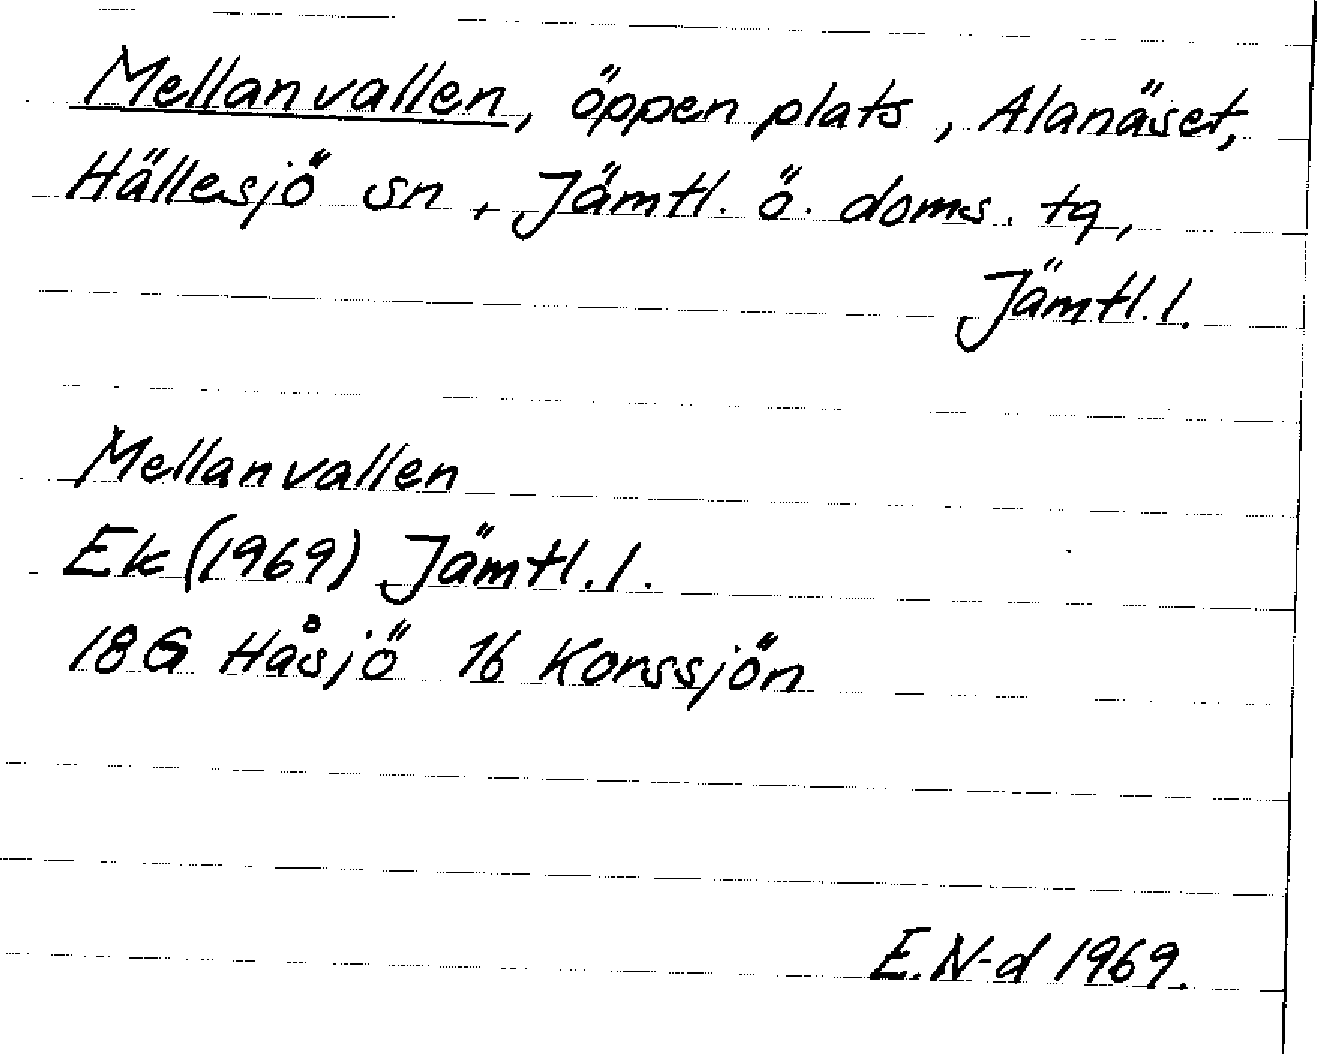 Mellanvallen, öppen plats, Alanäset,
Hällesjö sn, Jämtl. ö. doms. tg,
Jämtl. l.
Mellanvallen
Ek (1969) Jämtl. l.
18G Håsjö 16 Konssjön
E.N-d 1969.